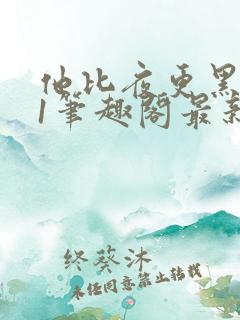 他比夜更黑
1笔趣阁最新
终葵沐
未经同意禁止转载